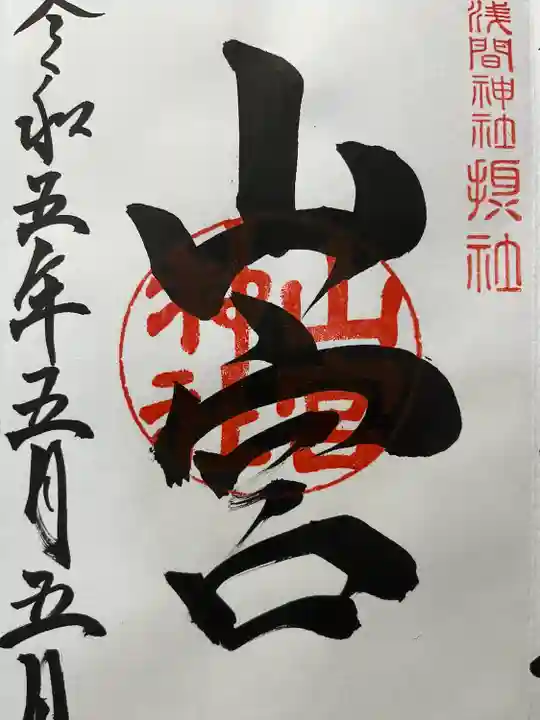 浅間神社摂社
山宮
山宮
神社
令和五年五月五日